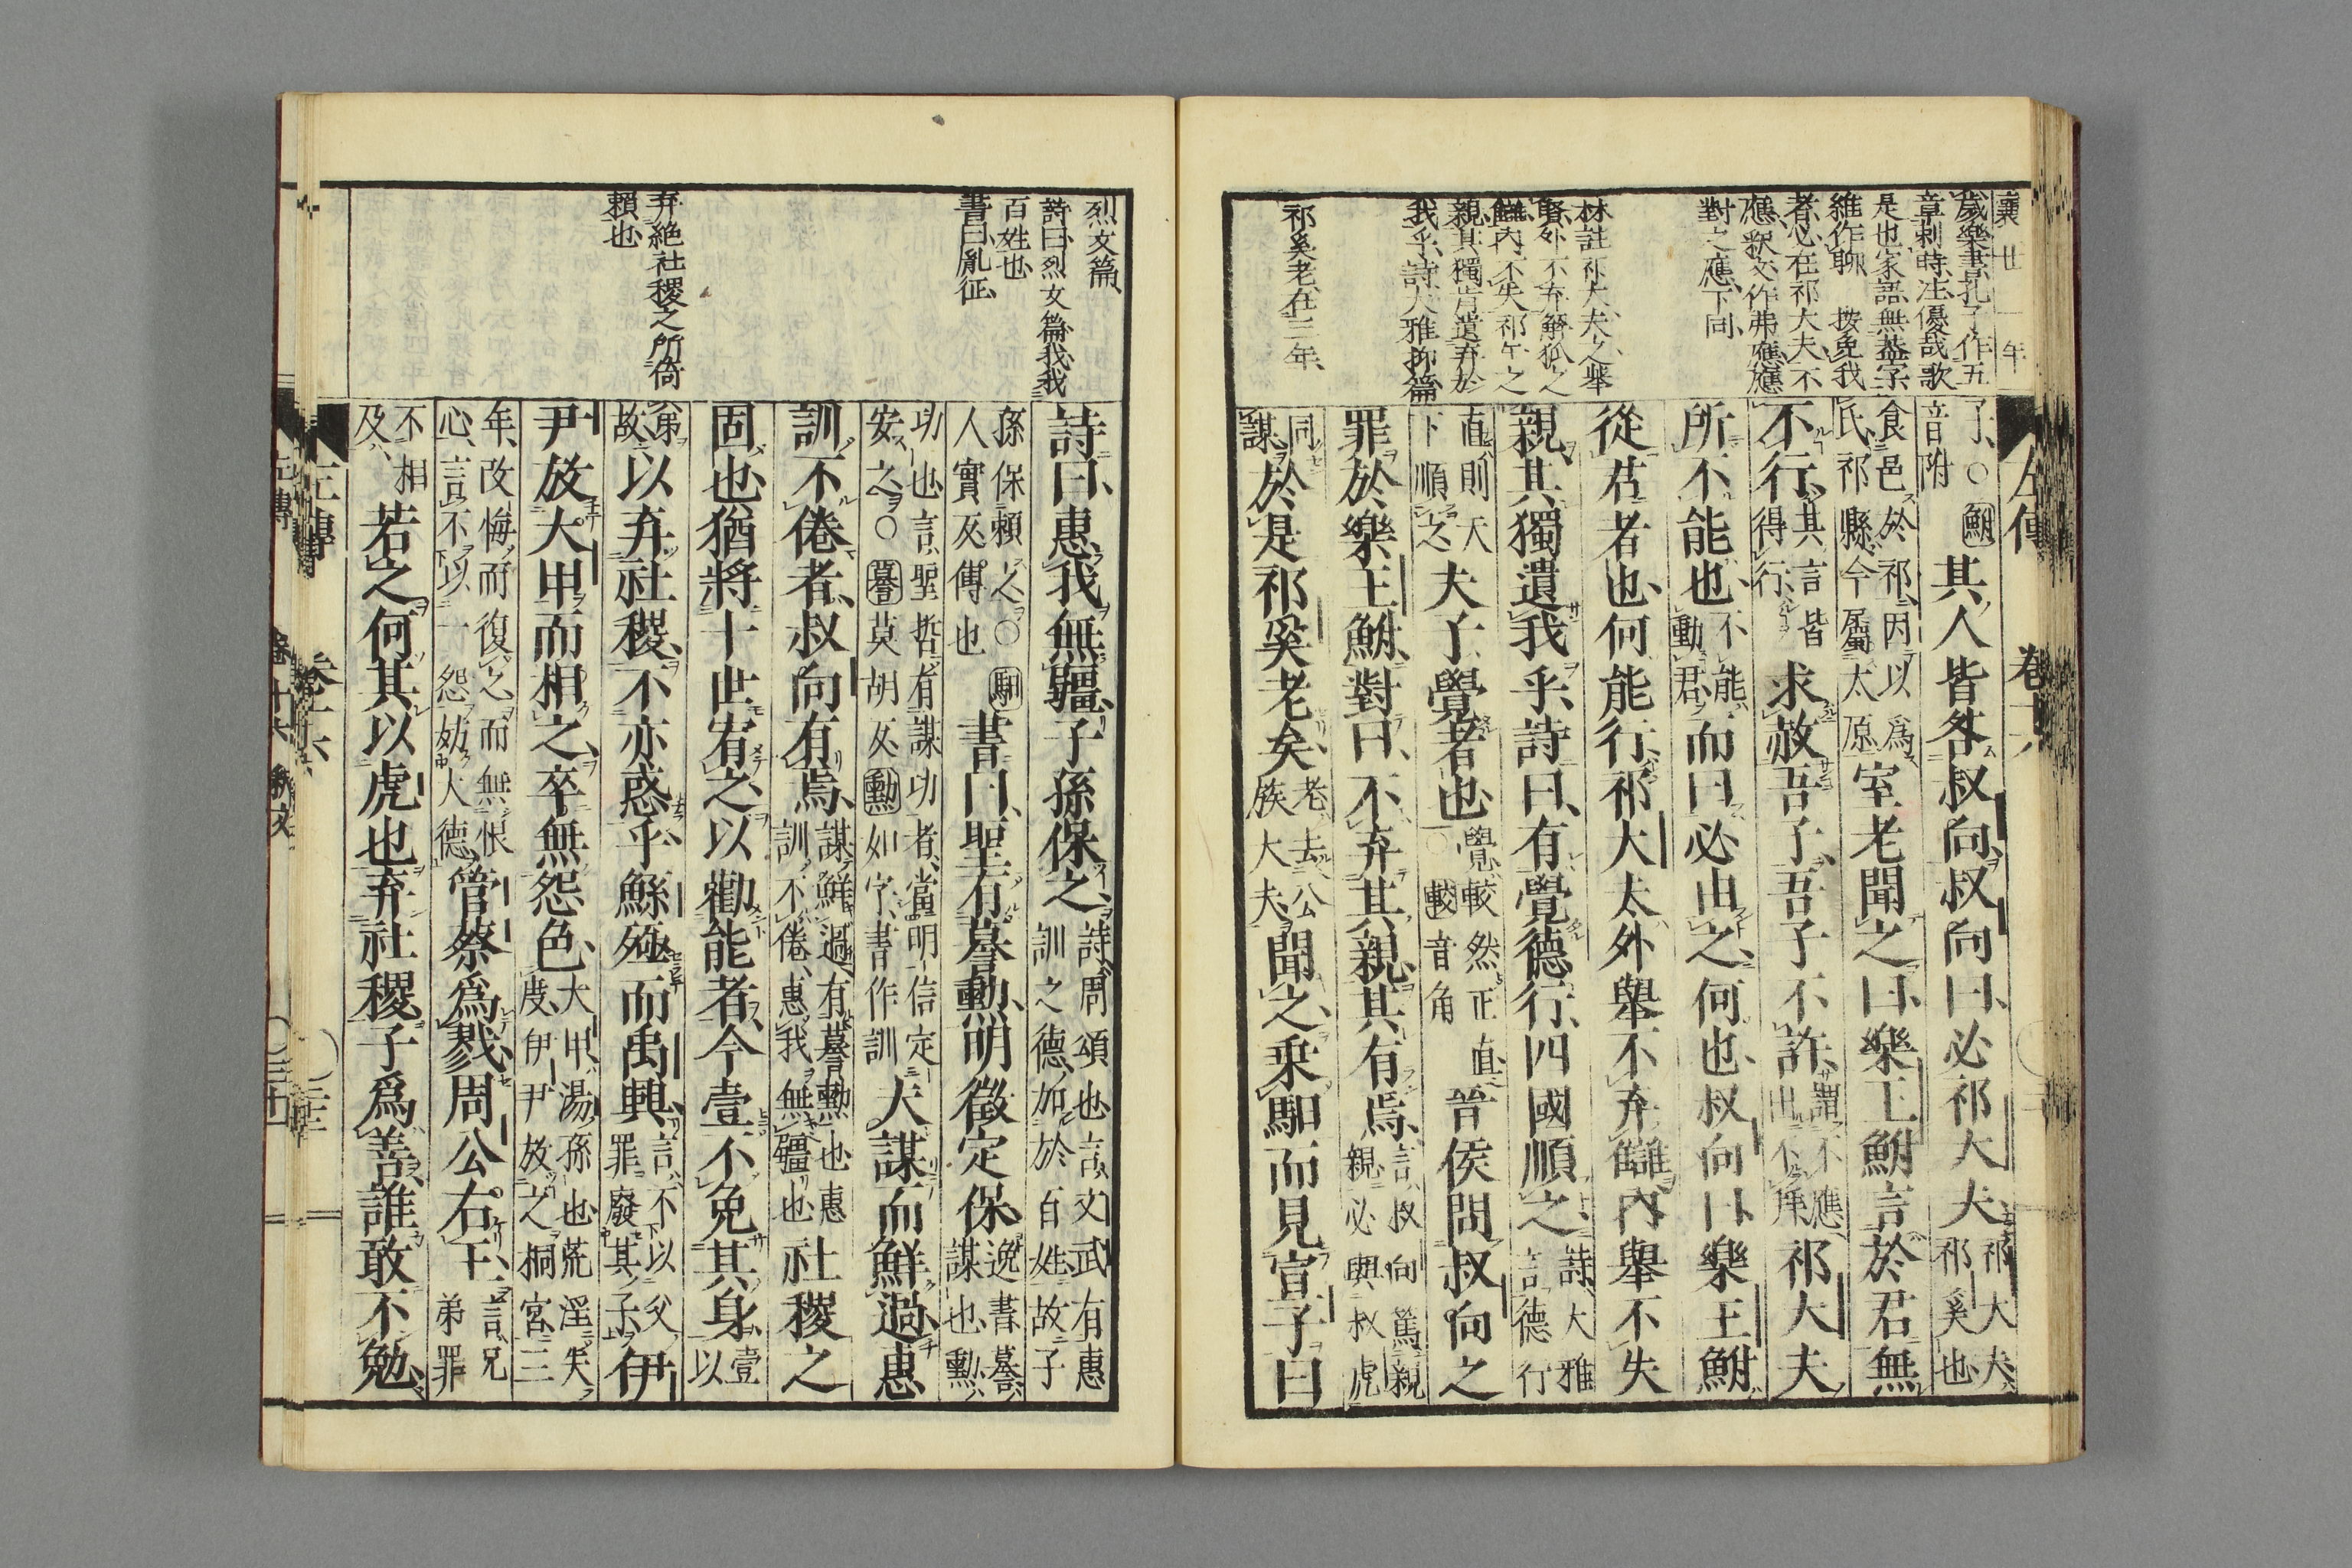 襄廿一年
歲樂書孔子作五
章刺時注優哉歌
是也家語無蓋字
維作聊　按免我
者心在祁大夫不
應釈文作弗應應
對之應下同
林註祁大夫之舉
賢外不弃觧狐之
讎内不失祁午之
親其獨肯遺弃於
我乎詩大雅抑篇
祁奚老在三年
左傳　卷十六
子○鮒音附其人皆咎叔向叔向曰必祁大夫祁大夫祁奚也
食邑於祁因以爲氏祁縣今屬太原室老聞之曰樂王鮒言於君無
不行其言皆得行求赦吾子吾子不許謂不應出不拜祁大夫
所不能也不能動君而曰必由之何也叔向曰樂王鮒
從君者也何能行祁大夫外舉不弃讎内舉不失
親其獨遺我乎詩曰有覺德行四國順之詩大雅言德行
直則天下順之夫子覺者也覺較然正直○較音角晉侯問叔向之
罪於樂王鮒對曰不弃其親其有焉言叔向篤親親必與叔虎
同謀於是祁奚老矣老去公族大夫聞之乘馹而見宣子曰
烈文篇
詩曰烈文篇我我
百姓也
書曰胤征
弃絶社稷之所倚
賴也
詩曰惠我無疆子孫保之詩周頌也言文武有惠訓之德加於百姓故子
孫保賴之○馹人實反傳也書曰聖有謩勲明徵定保逸書謩謀也勲
功也言聖哲有謀功者當明信定安之○謩莫胡反勲如字書作訓夫謀而鮮過惠
訓不倦者叔向有焉謀鮮過有謩勲也惠訓不倦惠我無疆也社稷之
固也猶將十世宥之以勸能者今壹不免其身壹以
弟故以弃社稷不亦惑乎鯀殛而禹興言不以父罪廢其子伊
尹放大甲而相之卒無怨色大甲湯孫也荒淫失度伊尹放之桐宮三
年改悔而復之而無恨心言不以一怨妨大德管蔡爲戮周公右王言兄弟罪
不相及若之何其以虎也弃社稷子爲善誰敢不勉
左傳　卷十六